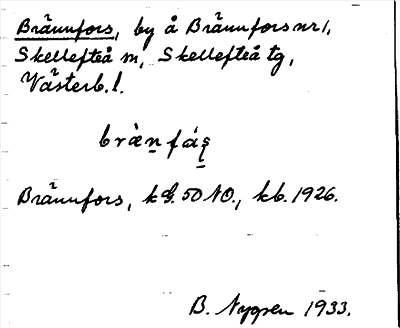 Brännfors, by å Brännfors nr 1,
Skellefteå m, Skellefteå tg,
Västerb. l.
Brännfors, kbl. 50 NO., kb. 1926.
B. Nygren 1933.